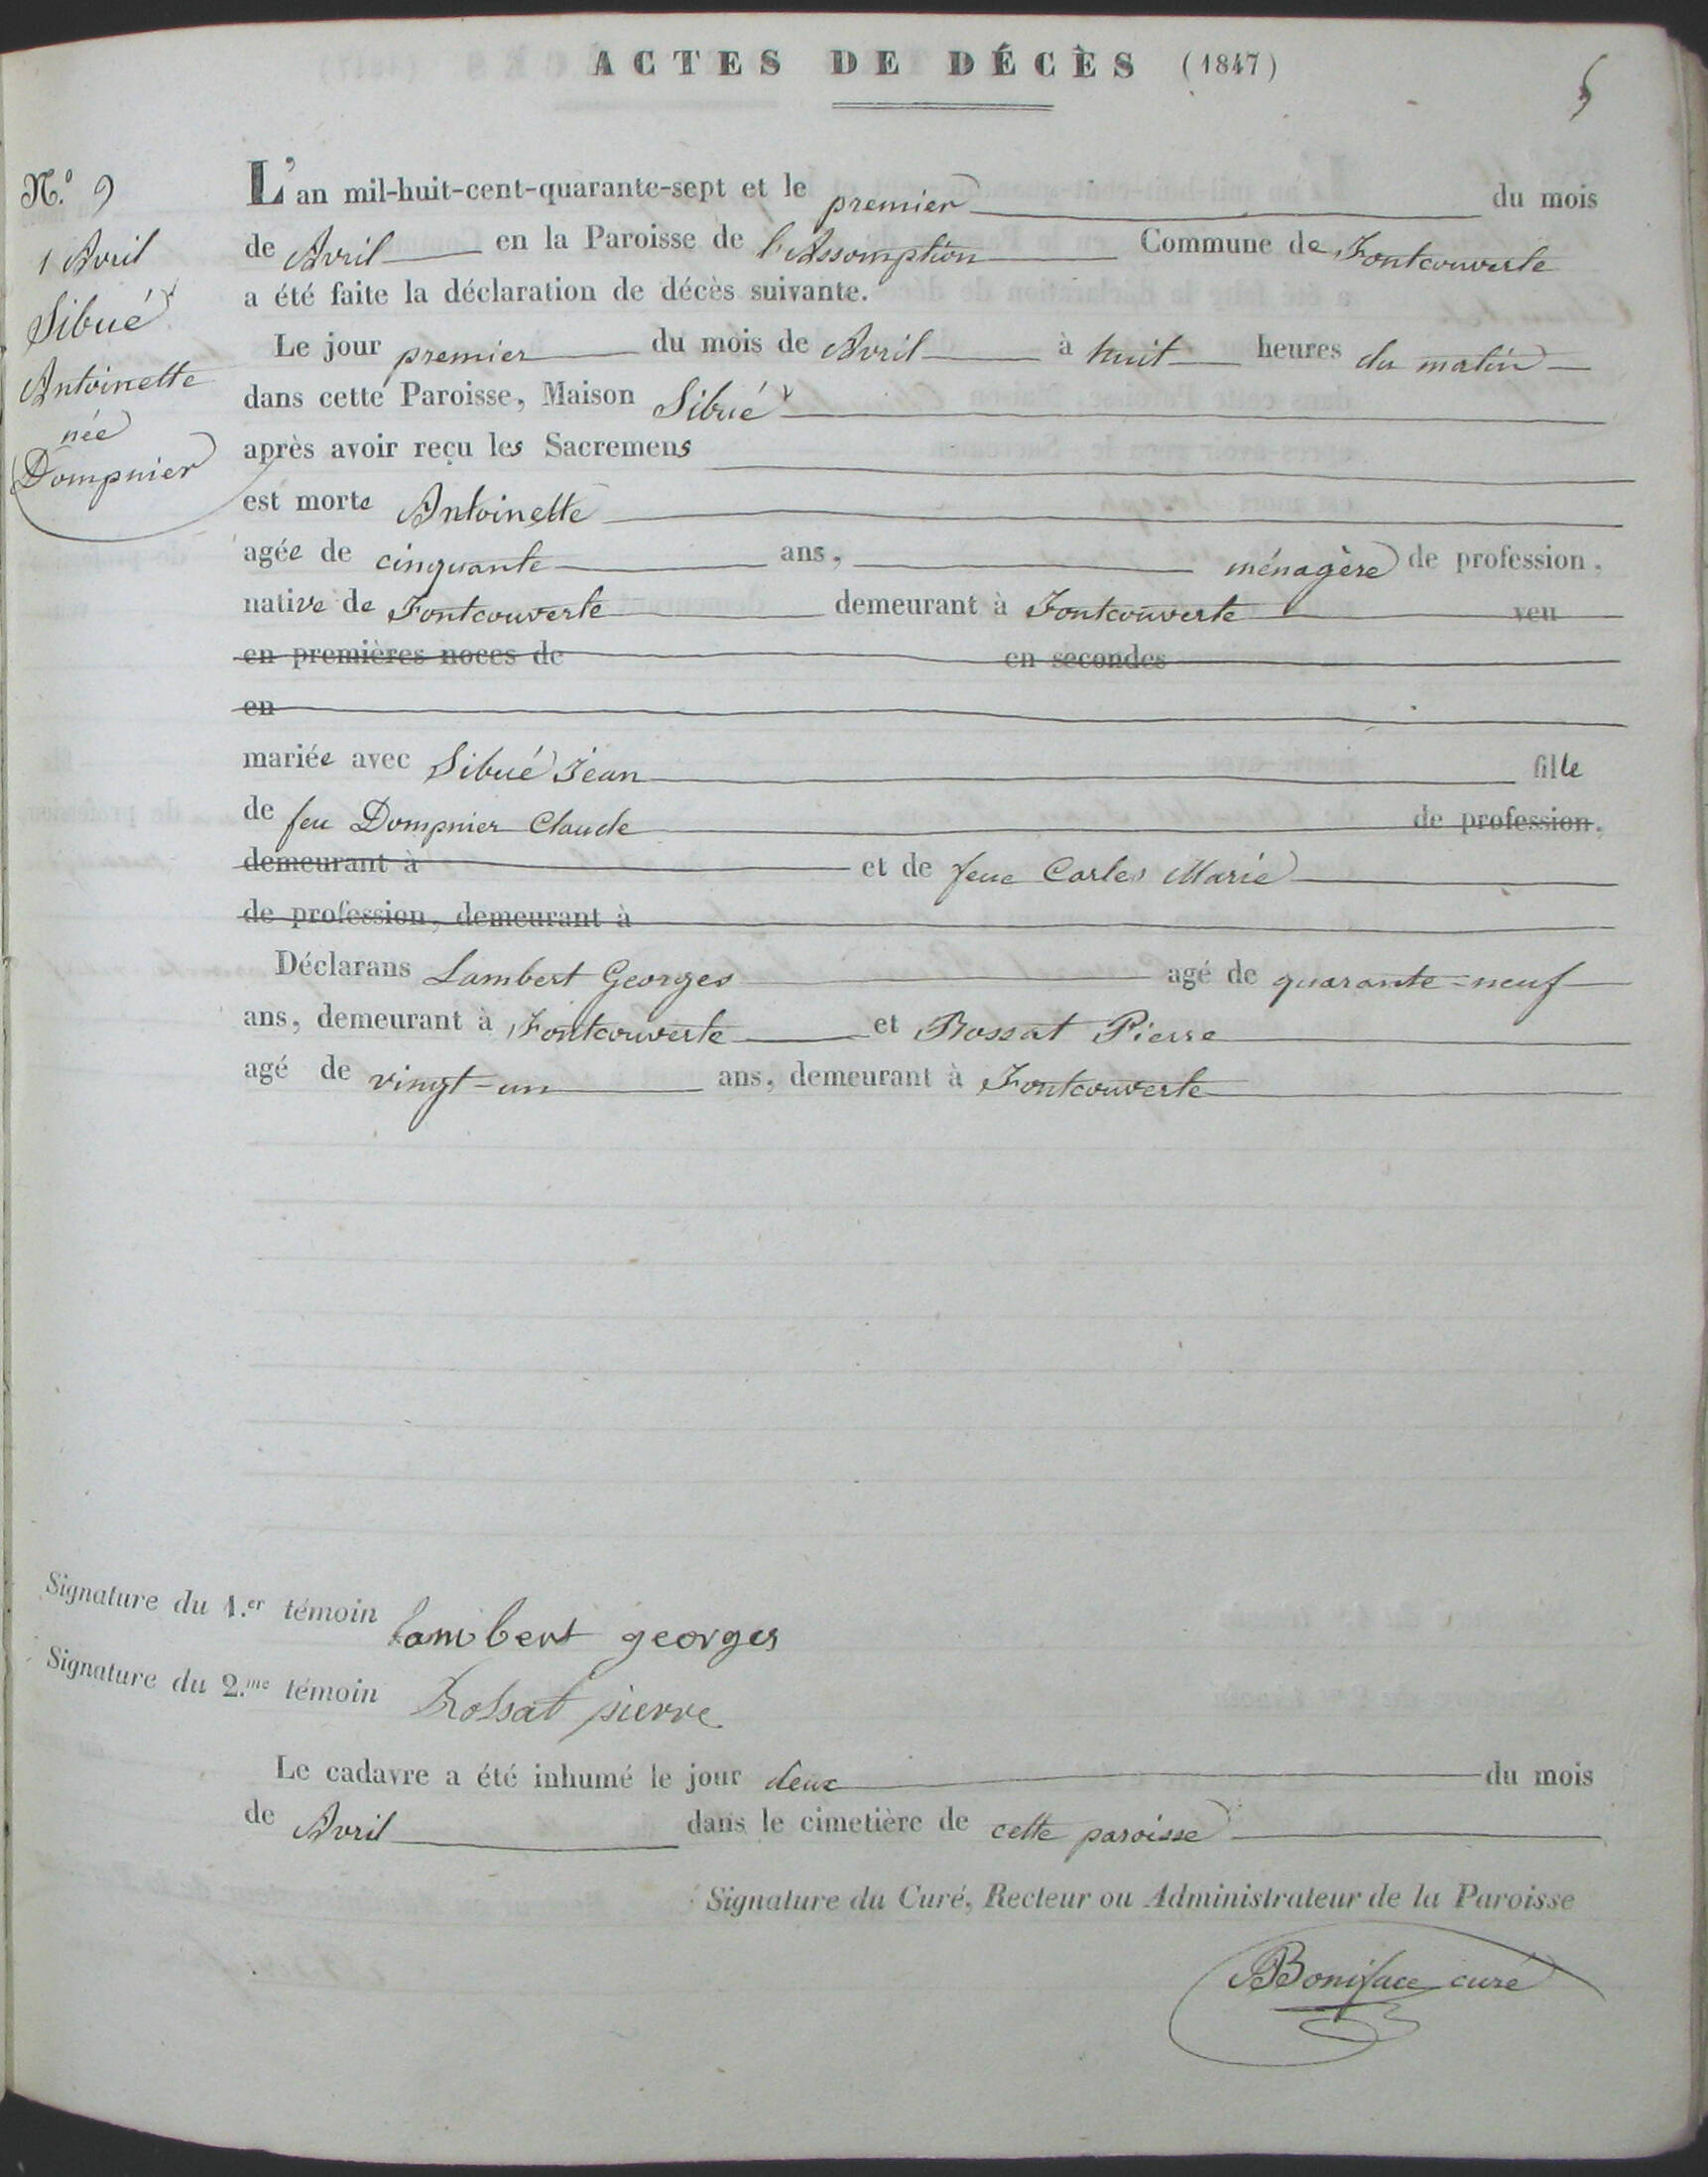 ACTES DE DÉCÈS (1847)
5
N.º 9
1 Avril
Sibué
Antoinette
née
Dompnier
L'an mil-huit-cent-quarante-sept et le premier du mois
de Avril en la Paroisse de l'Assomption Commune de Fontcouverte
a été faite la déclaration de décès suivante.
Le jour premier du mois de Avril à huit heures du matin
dans cette Paroisse, Maison Sibué
après avoir reçu les Sacremens
est morte Antoinette
agée de cinquante ans, ménagère de profession,
native de Fontcouverte demeurant à Fontcouverte veu
en premières noces de en secondes
en
mariée avec Sibué Jean fille
de feu Dompnier Claude de profession,
demeurant à et de feue Carles Marie
de profession, demeurant à
Déclarans Lambert Georges agé de quarante-neuf
ans, demeurant à Fontcouverte et Rossat Pierre
agé de vingt-un ans, demeurant à Fontcouverte
Signature du 1.er témoin Lambert georges
Signature du 2.me témoin Rossat pierre
Le cadavre a été inhumé le jour deux du mois
de Avril dans le cimetière de cette paroisse
Signature du Curé, Recteur ou Administrateur de la Paroisse
Boniface curé